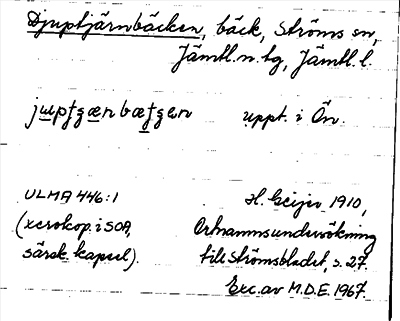 Djuptjärnbäcken, bäck, Ströms sn,
Jämtl. n. tg, Jämtl. l.
uppt. i Ön.
ULMA 446:1 H. Geijer 1910,
(xerokop. i SOA, Ortnamnsundersökning
särsk. kapsel). till Strömsbladet, s. 27.
Exc. av M.D.E. 1967.